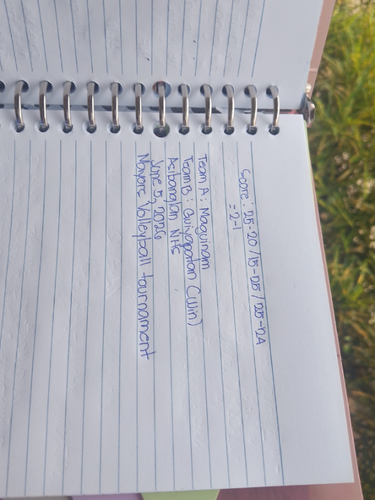 Score: 25-20 / 15-25 / 25-24
= 2-1
Team A: Maguinam
Team B: (Win)
Asibanglan NHS
June 5, 2026
Mayors Volleyball tournament